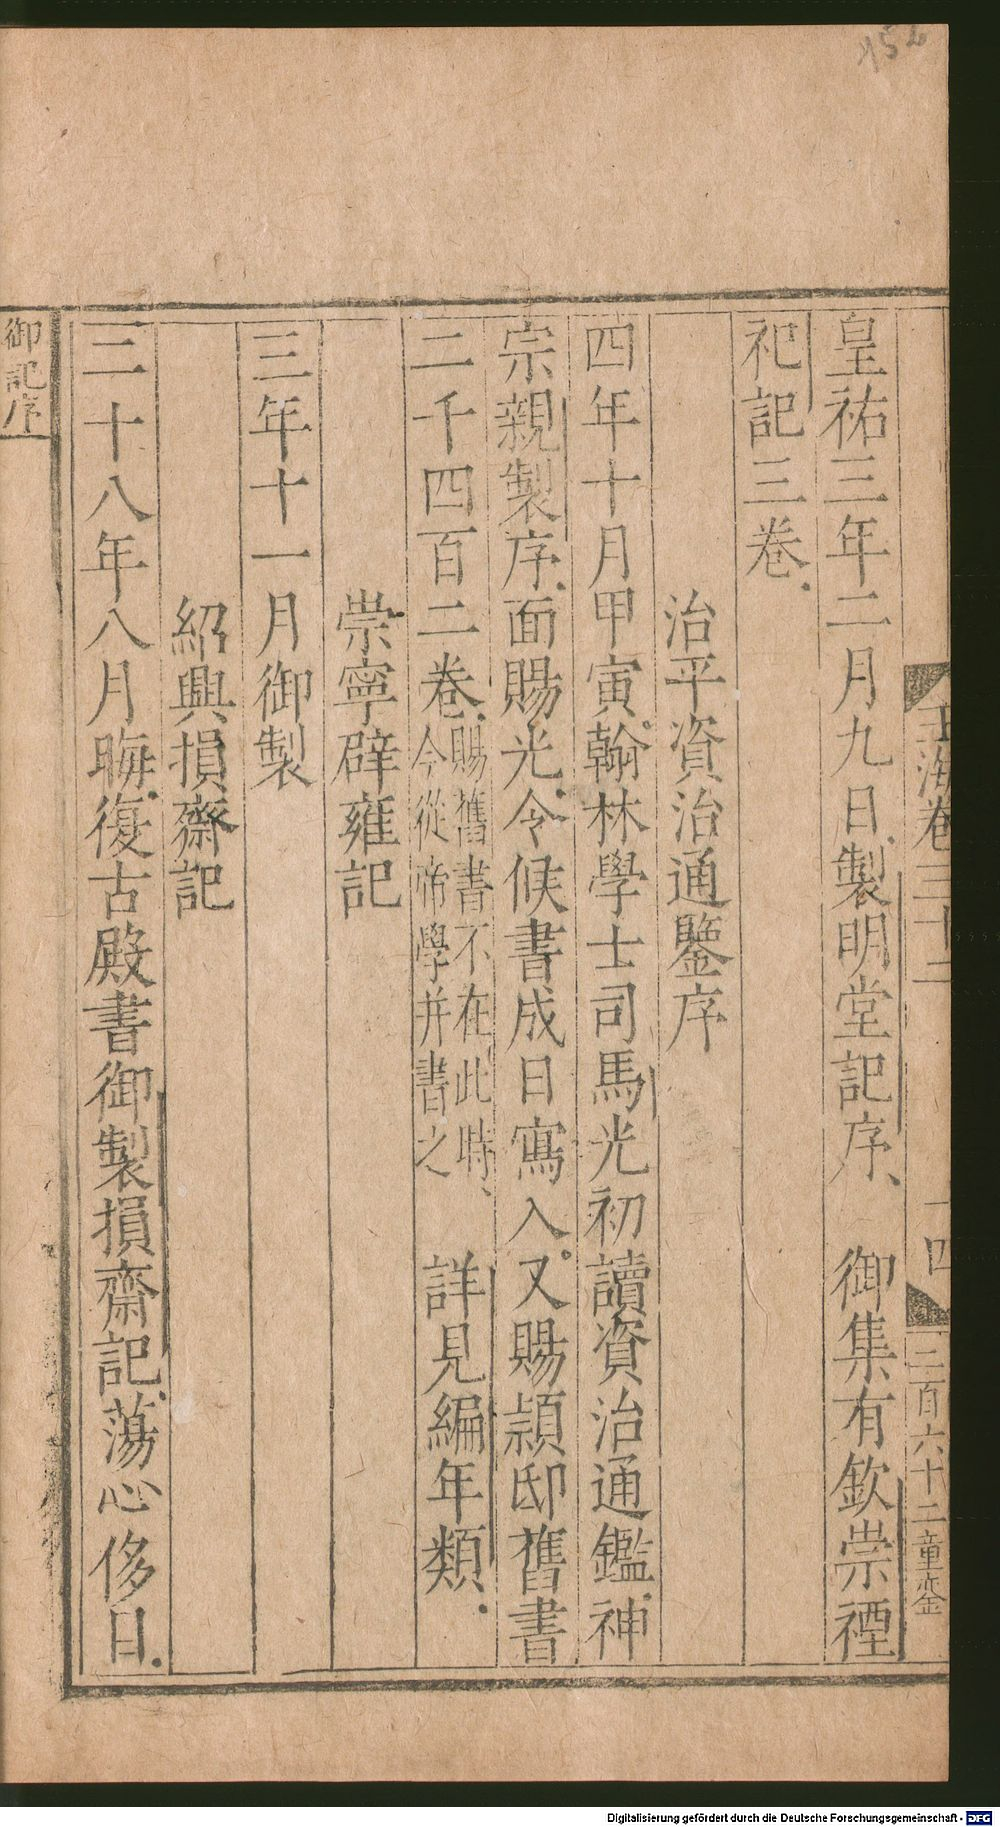 玉海卷三十二
十四
三百六十二
皇祐三年二月九日製明堂記序、　御集有欽崇禋
祀記三卷．
治平資治通鑒序
四年十月甲寅翰林學士司馬光初讀資治通鑑神
宗親製序．面賜光．令候書成日寫入。又賜頴邸舊書
二千四百二卷．賜舊書不在此時、
今從帝學并書之
詳見編年類．
崇寧辟雍記
三年十一月御製
紹興損齋記
二十八年八月晦．復古殿書御製損齋記．蕩心侈日．
御記序
Digitalisierung gefördert durch die Deutsche Forschungsgemeinschaft - DFG